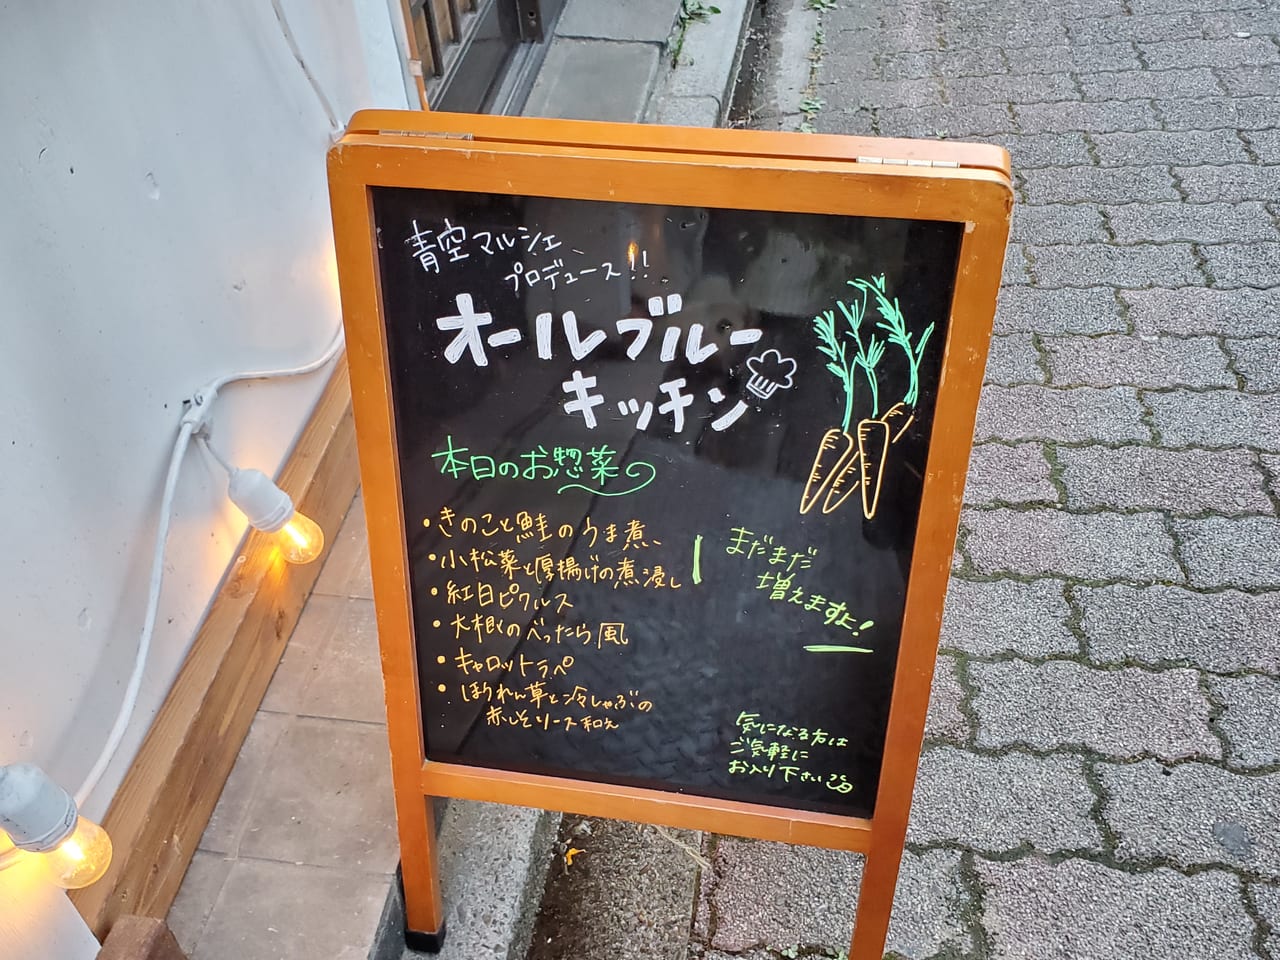 青空マルシェ
プロデュース!!
オールブルー
キッチン
本日のお惣菜
・きのこと鮭のうま煮、
・小松菜と厚揚げの煮浸し
・紅白ピクルス
・大根のべったら風
・キャロットラペ
・ほうれん草と冷しゃぶの
赤しそソース和え
まだまだ
増えますよ!
気になる方は
ご気軽に
お入り下さい